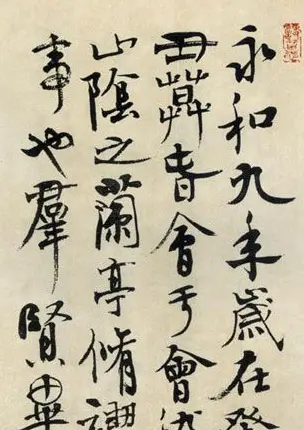 永和九年歲在癸
丑暮春會于會
山陰之蘭亭脩禊
事也羣賢畢